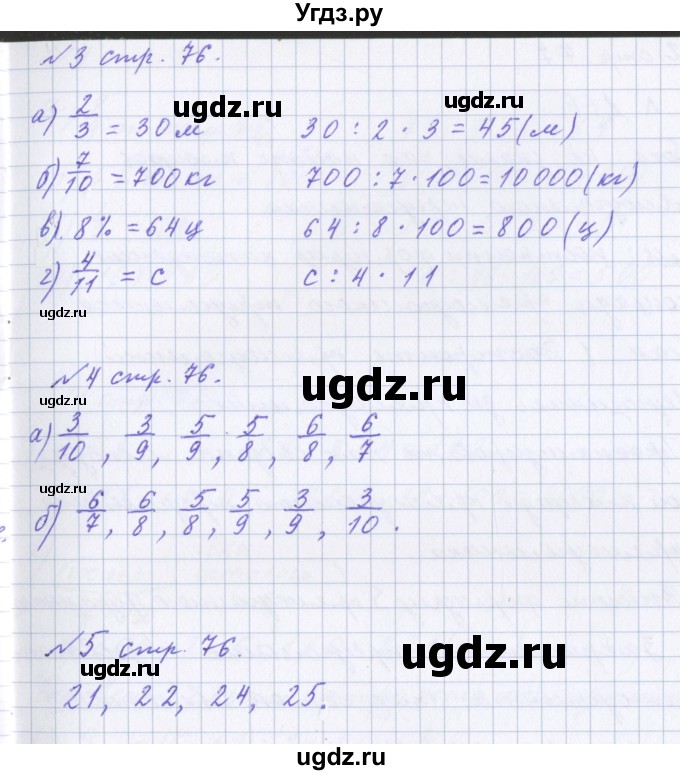 Угдз.ру
№3 стр. 76.
ugdz.ru
ugdz.ru
а) 2/3 = 30 м 30 : 2 · 3 = 45 (м)
б) 7/10 = 700 кг 700 : 7 · 100 = 10000 (кг)
в) 8% = 64 ц 64 : 8 · 100 = 800 (ц)
г) 4/11 = с с : 4 · 11
ugdz.ru
№4 стр. 76.
ugdz.ru
ugdz.ru
а) 3/10, 3/9, 5/9, 5/8, 6/8, 6/7
ugdz.ru
б) 6/7, 6/8, 5/8, 5/9, 3/9, 3/10.
№5 стр. 76.
ugdz.ru
ugdz.ru
21, 22, 24, 25.
ugdz.ru